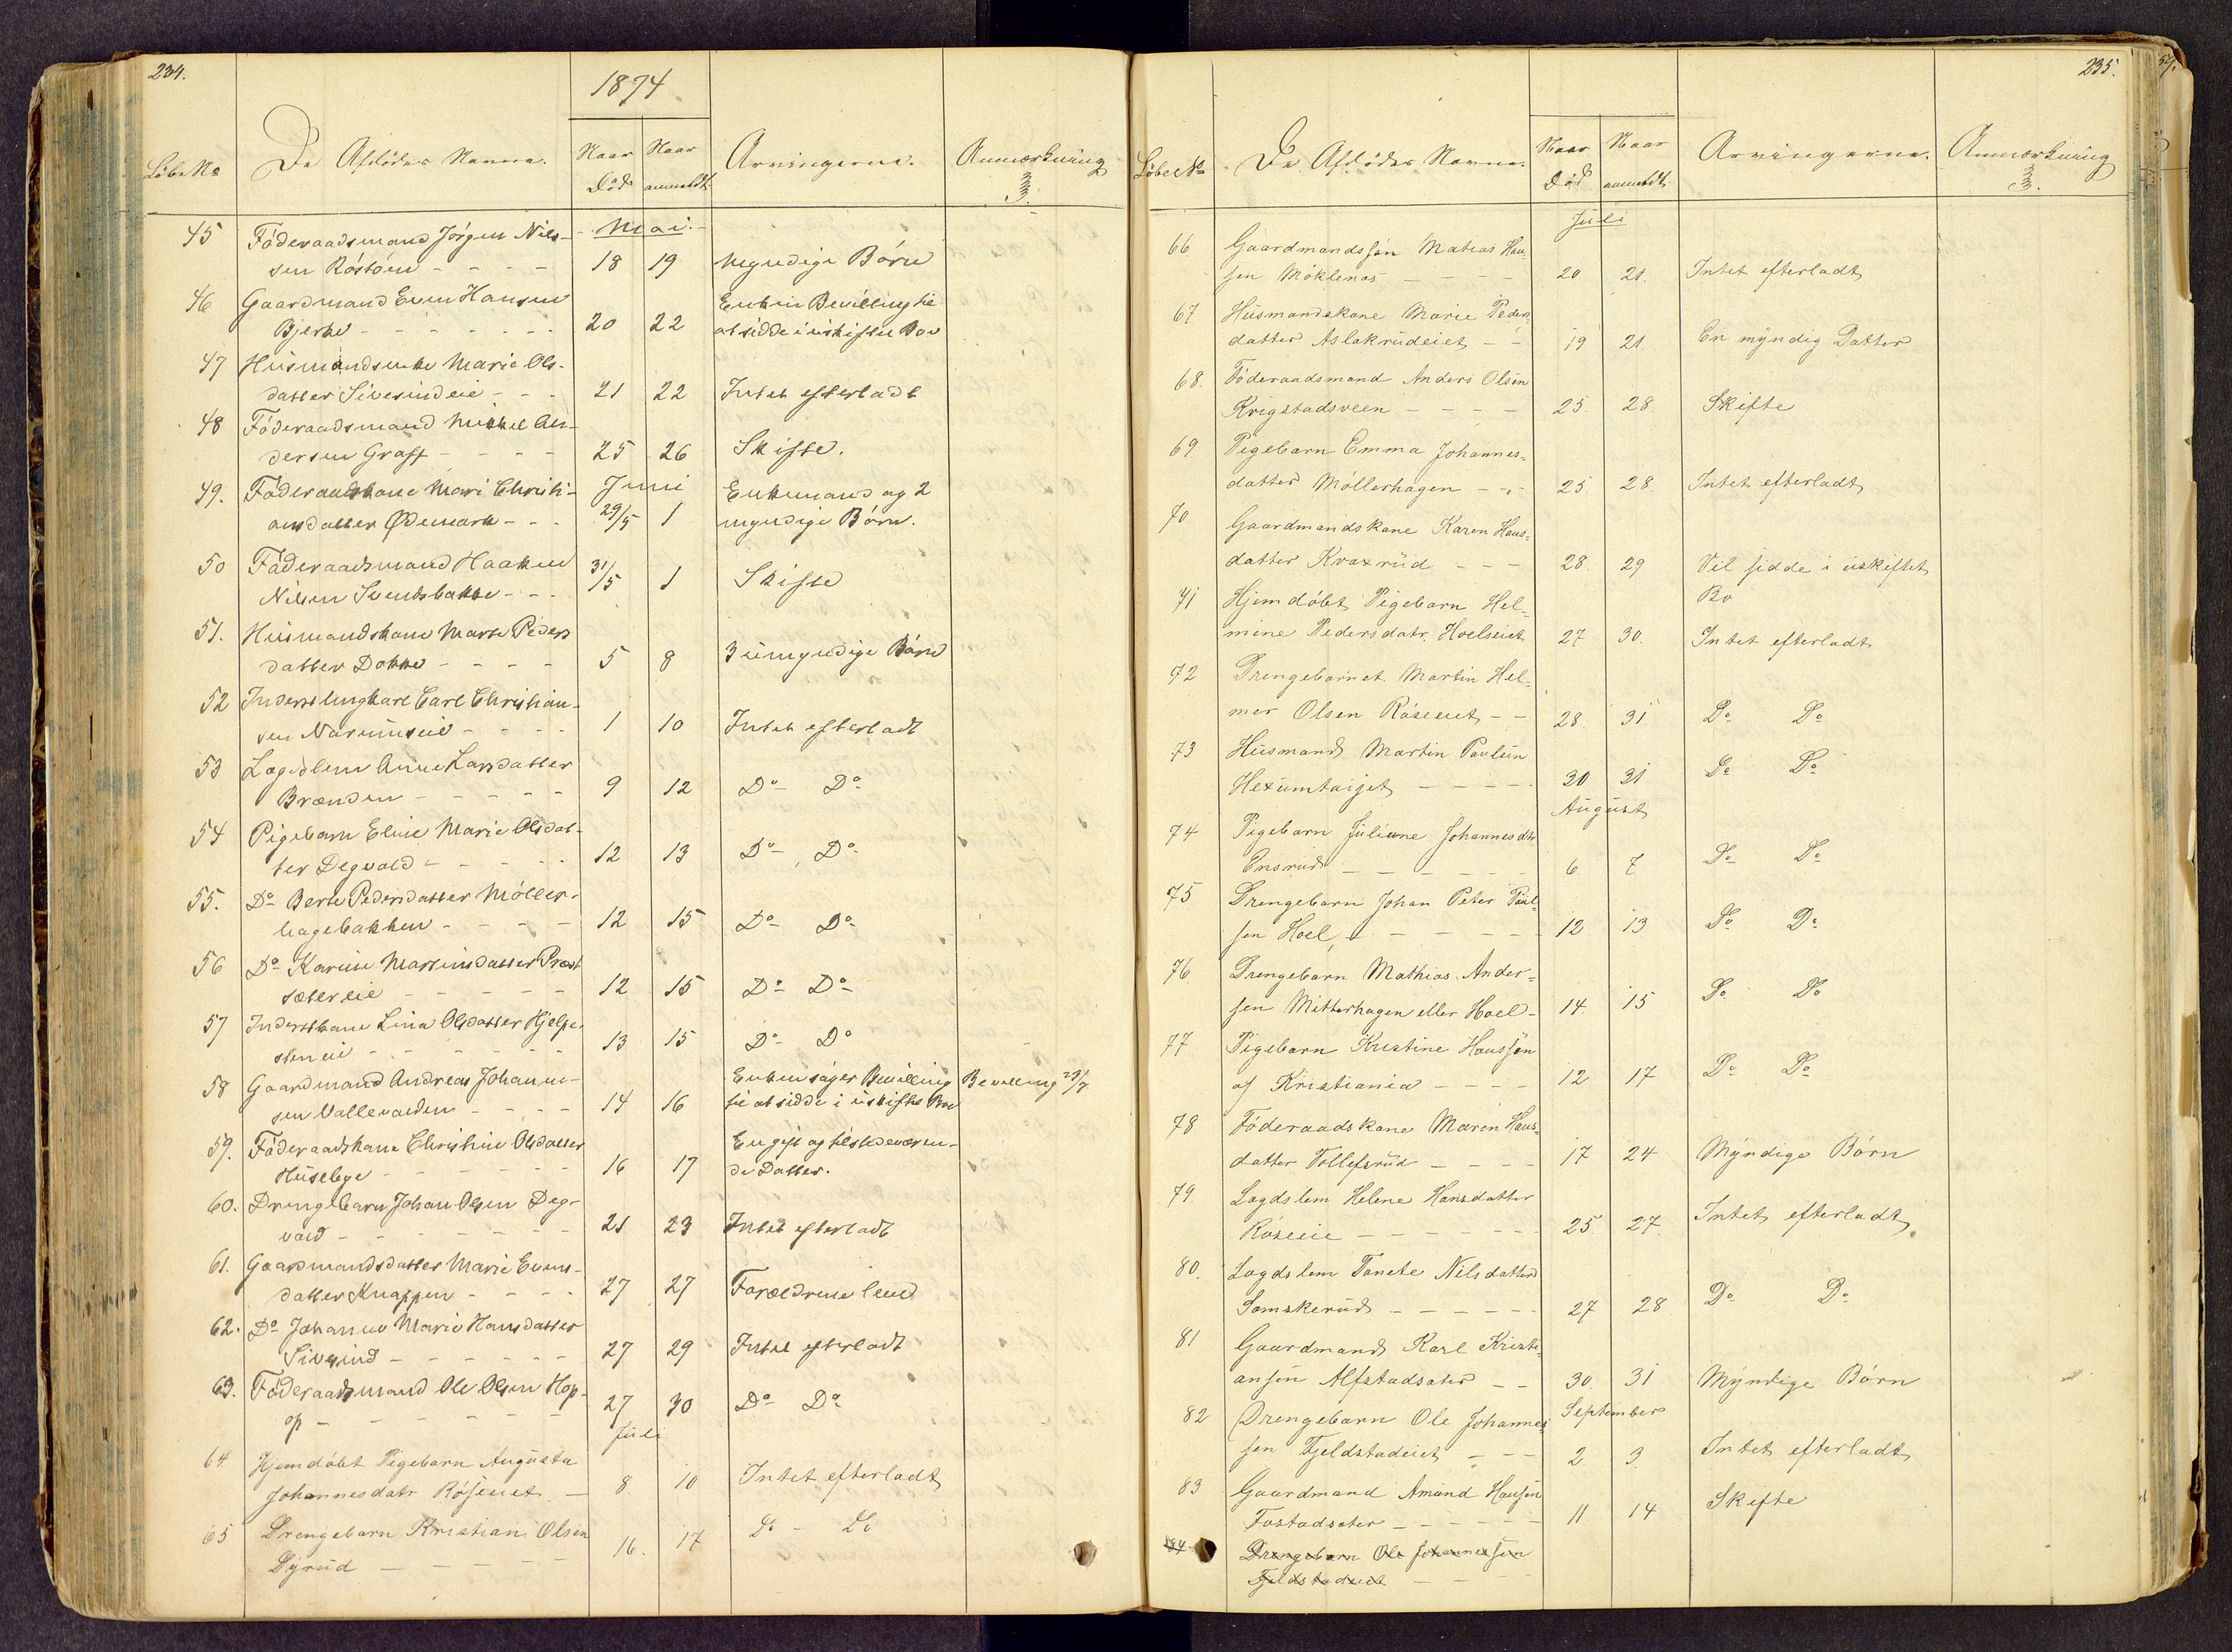 234.
1874
Løbe No De Afdødes Navne. Naar Død Naar anmeldt. Arvingerne. Anmærkning
Mai.
45 Föderaadsmand Jörgen Nils-
sen Röstöen - - - - 18 19 Myndige Börn
46 Gaardmand Even Hansen Enken Bevilling til
Bjerke - - - - - - 20 22 at sidde i uskiftet Bo
47 Husmandsenke Marie Ols-
datter Sivesindeie - - - 21 22 Intet efterladt
48 Föderaadsmand Mikkel An-
dersen Graff - - - - 25 26 Skifte.
Juni
49. Föderaadskone Mari Christi- Enkemand og 2
ansdatter Ødemark - - - 29/5 1 myndige Börn.
50 Föderaadsmand Haaken
Nilsen Svendsbakke - - - 31/5 1 Skifte
51. Husmandskone Marte Peders
datter Dokke - - - - 5 8 3 umyndige Börn
52 Inderstungkarl Carl Christian-
sen Narumseie - - - - 1 10 Intet efterladt
53 Lægdslem Anne Larsdatter
Brænden - - - - - 9 12 Do Do
54 Pigebarn Eline Marie Olsdat-
ter Degvold - - - - - 12 13 Do Do
55. Do Berte Pedersdatter Möller-
hagebakken - - - - 12 15 Do Do
56 Do Karine Martinsdatter Præst
sætereie - - - - - 12 15 Do Do
57 Inderstkone Lina Olsdatter Hjelpe-
steneie - - - - - - 13 15 Do Do
58 Gaardmand Andreas Johanne- Enken söger Bevilling Bevilling 29/7
sen Vallevarden - - - - 14 16 til at sidde i uskiftet Bo
59. Föderaadskone Christine Olsdatter En gift og tilstedeværen-
Huselye - - - - - - 16 17 de Datter.
60. Drengebarn Johan Olsen Deg-
vold - - - - - - - 21 23 Intet efterladt
61. Gaardmandsdatter Marie Evens-
datter Knappen - - - - 27 27 Forældrene leve
62. Do Johanne Marie Hansdatter
Sivesind - - - - - - 27 29 Intet efterladt
63. Föderaadsmand Ole Olsen Hop-
op - - - - - - - 27 30 Do Do
Juli
64 Hjemdöbt Pigebarn Augusta
Johannesdatr Röseiet - 8. 10 Intet efterladt
65 Drengebarn Kristian Olsen
Dyrud - - - - - 16. 17 Do - Do
235.
57.
LøbeNo De Afdødes Navne. Naar Død Naar anmeldt. Arvingerne. Anmærkning
Juli
66 Gaardmandssön Matias Han-
sen Möklenas - - - - 20 21. Intet efterladt
67 Husmandskone Marie Peders-
datter Aslakrudeiet - - 19 21. En myndig Datter
68. Föderaadsmand Anders Olsen
Krigstadsveen - - - - 25. 28. Skifte
69. Pigebarn Emma Johannes-
datter Möllerhagen - - 25 28. Intet efterladt
70 Gaardmandskone Karen Hans-
datter Kvaxrud - - - 28. 29 Vil sidde i uskiftet
Bo
71 Hjemdöbt Pigebarn Hel-
mine Pedersdatr. Hoelseiet 27 30. Intet efterladt
72 Drengebarnet Martin Hel-
mer Olsen Röseeiet - - 28. 31 Do Do
73 Husmand Martin Paulsen
Hexumtaijet - - - - - 30 31 Do Do
August
74 Pigebarn Juliane Johannesdtr
Ensrud - - - - - - 6. 7 Do Do
75 Drengebarn Johan Peter Paul-
sen Hoel - - - - - 12 13 Do Do
76 Drengebarn Mathias Ander-
sen Mitterhagen eller Hoel - 14. 15 Do Do
77 Pigebarn Kristine Hanssön
af Kristiania - - - - 12 17 Do Do
78 Föderaadskone Maren Hans-
datter Tollefsrud - - - - 17 24 Myndige Börn
79. Lagdslem Helene Hansdatter
Röseeie - - - - - - 25 27 Intet efterladt.
80. Lagdslem Tonete Nilsdatter
Somskerud - - - - - 27 28 Do Do
81 Gaardmand Karl Kristi-
ansen Alfstadsater - - 30. 31 Myndige Börn
September
82 Drengebarn Ole Johannes-
sen Fjeldstadeiet - - - 2. 3. Intet efterladt
83 Gaardmand Amund Hansen
Fastadsater - - - - - 11. 14 Skifte
84 Drengebarn Ole Johannessen
Fjeldstadeiet - - -